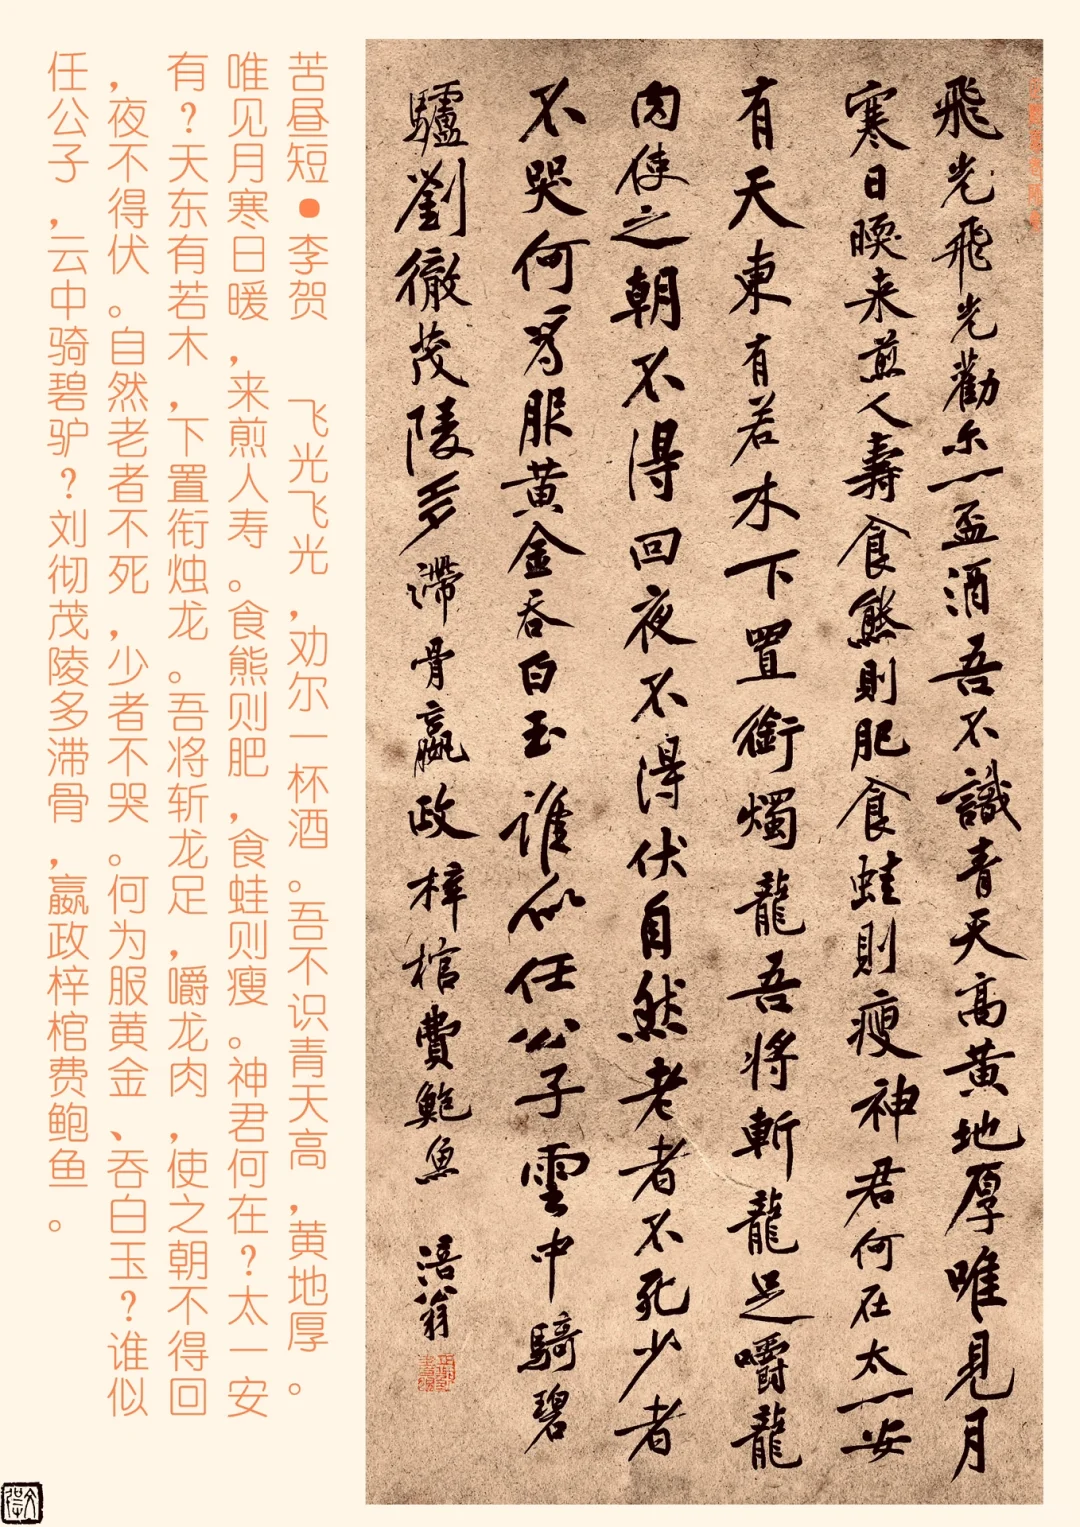 飛光飛光勸尔一盃酒吾不識青天高黃地厚唯見月
寒日暖来煎人壽食熊則肥食蛙則瘦神君何在太一安
有天東有若木下置銜燭龍吾将斬龍足嚼龍
肉使之朝不得回夜不得伏自然老者不死少者
不哭何爲服黃金吞白玉誰似任公子雲中騎碧
驢劉徹茂陵多滯骨嬴政梓棺費鮑魚
涪翁
苦昼短•李贺 飞光飞光，劝尔一杯酒。吾不识青天高，黄地厚。
唯见月寒日暖，来煎人寿。食熊则肥，食蛙则瘦。神君何在？太一安
有？天东有若木，下置衔烛龙。吾将斩龙足，嚼龙肉，使之朝不得回
，夜不得伏。自然老者不死，少者不哭。何为服黄金、吞白玉？谁似
任公子，云中骑碧驴？刘彻茂陵多滞骨，嬴政梓棺费鲍鱼。